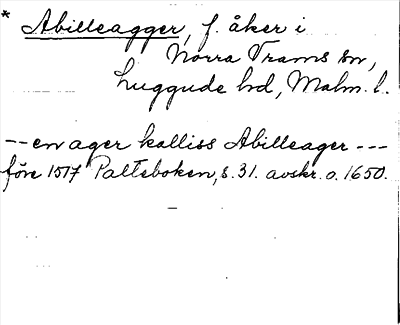 * Abilleagger, f. åker i
Norra Vrams sn,
Luggude hd, Malm. l.
-- en ager kalliss Abilleager ---
före 1517 Palteboken, s. 31. avskr. o. 1650.